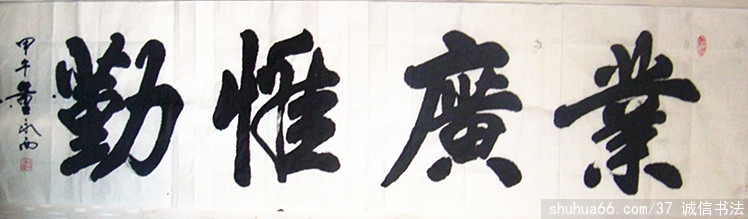 業廣惟勤
甲午董永西
shuhua66.com/37 诚信书法